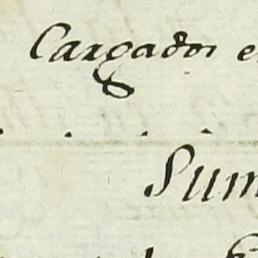 Cargados e
. . . .
Sum